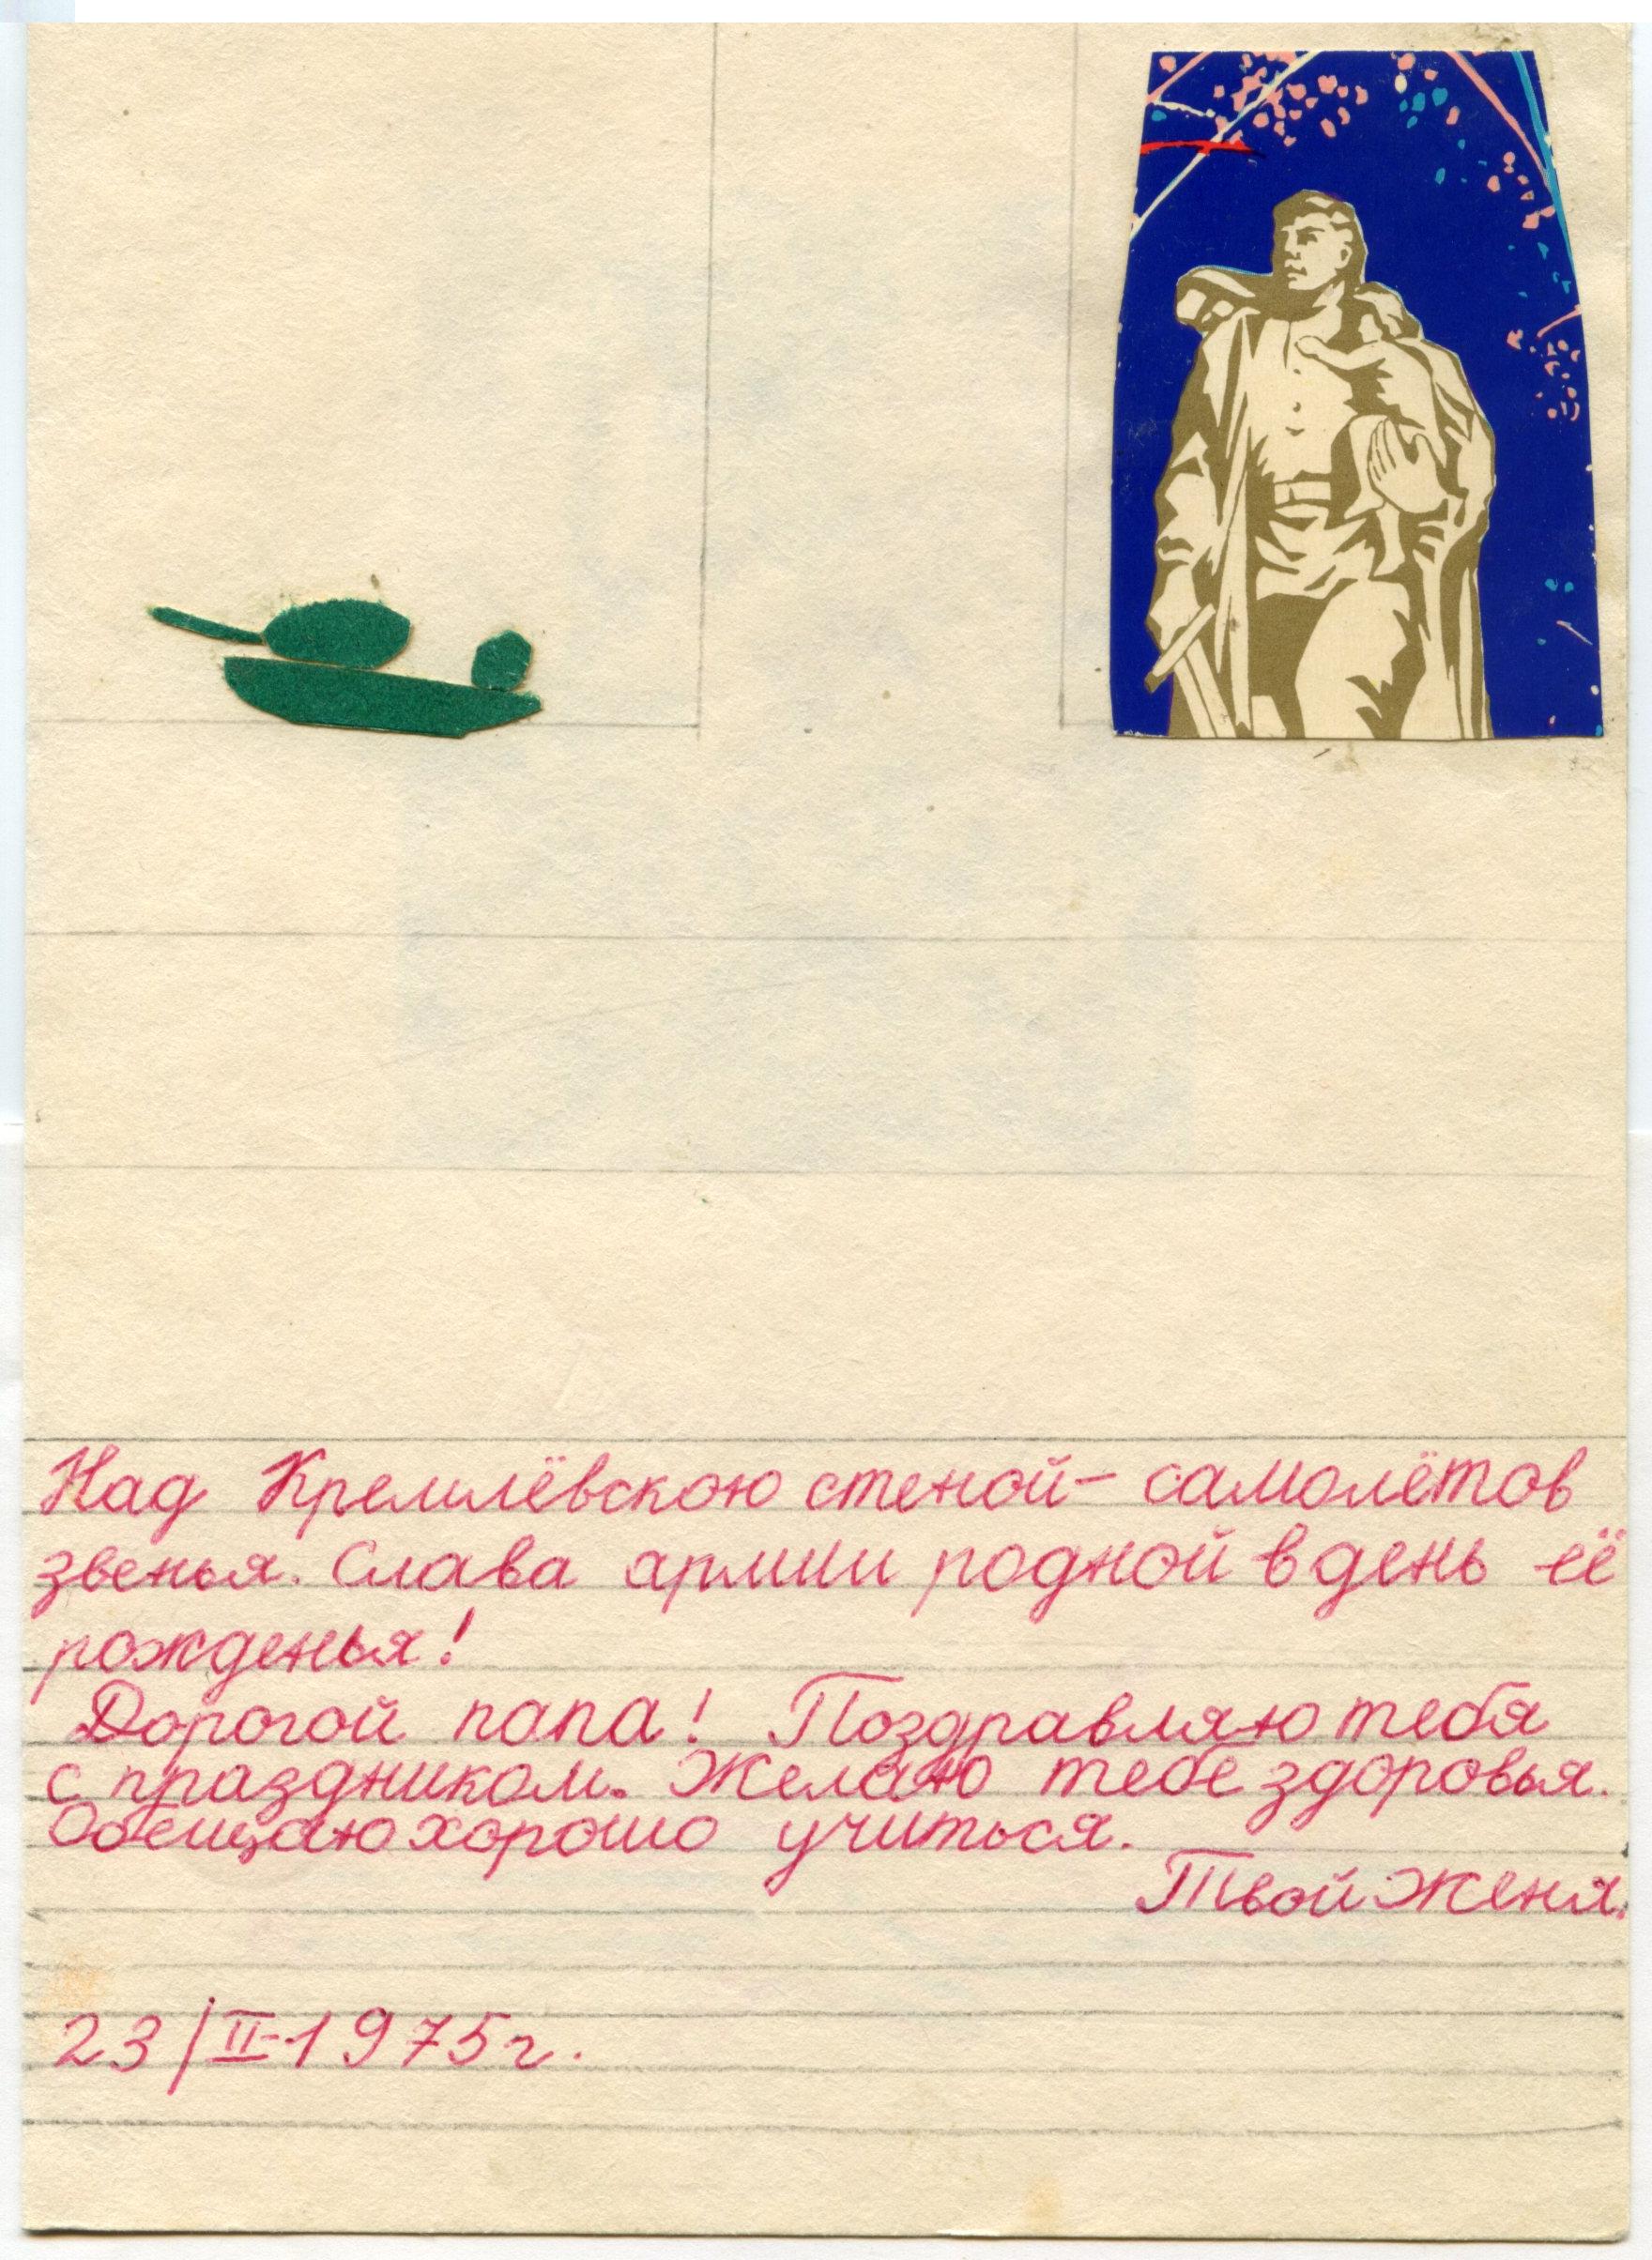 Над Кремлёвскою стеной – самолётов
звенья. Слава армии родной в день её
рожденья!
Дорогой папа! Поздравляю тебя
с праздником. Желаю тебе здоровья.
Обещаю хорошо учиться.
Твой Женя.
23/II-1975г.